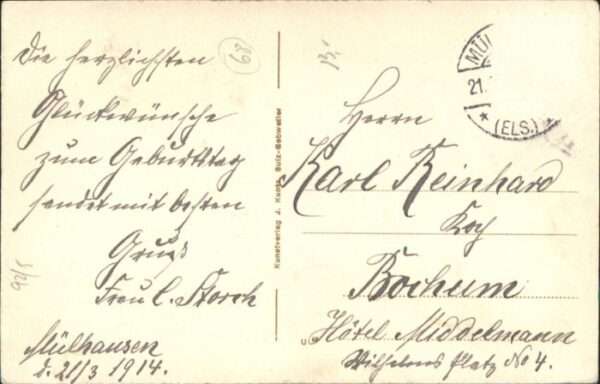 Die herzlichsten
Glückwünsche
zum Geburtstag
sendet mit besten
Gruß
Frau C. Storch
Mülhausen
d. 21/3 1914.
68
92/5
Kunstverlag J. Kuntz, Sulz-Gebweiler
MÜL
21.
* (ELS.)
Herrn
Karl Reinhard
Koch
Bochum
Hôtel Middelmann
Wilhelms Platz No 4.